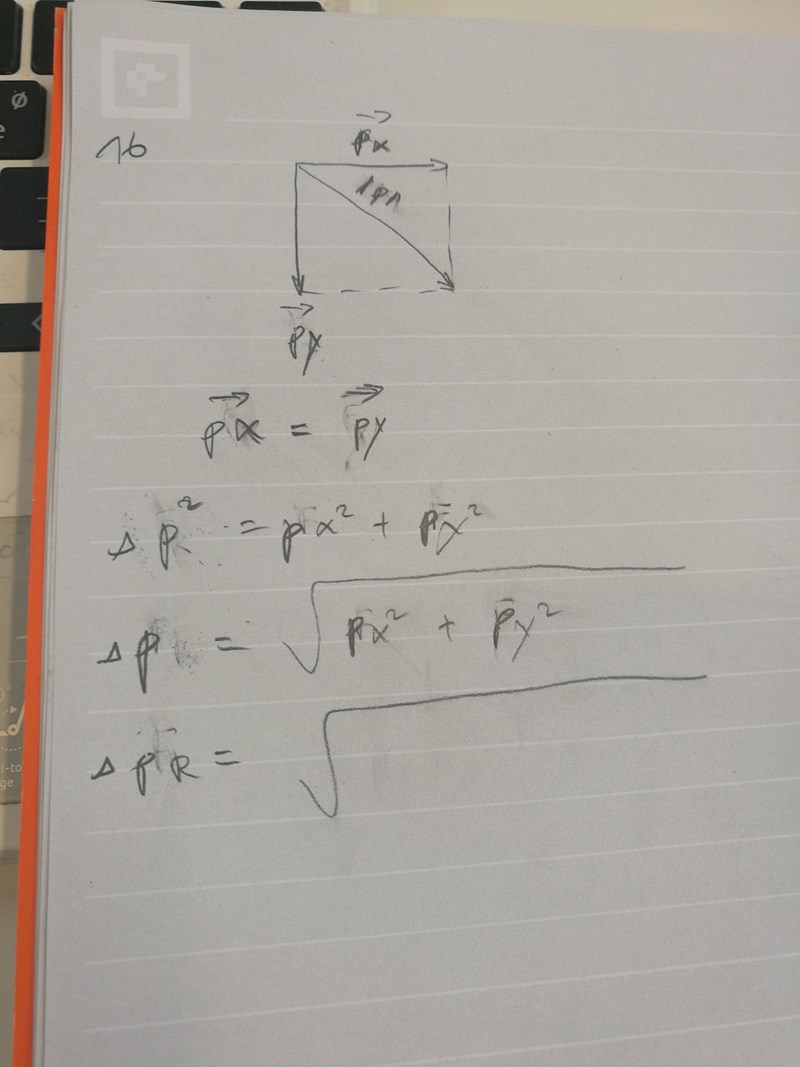 16
→
px
|p|
→
py
→ →
px = py
Δ p² = px² + py²
Δ p = √ px² + py²
Δ pR = √
Ø
e